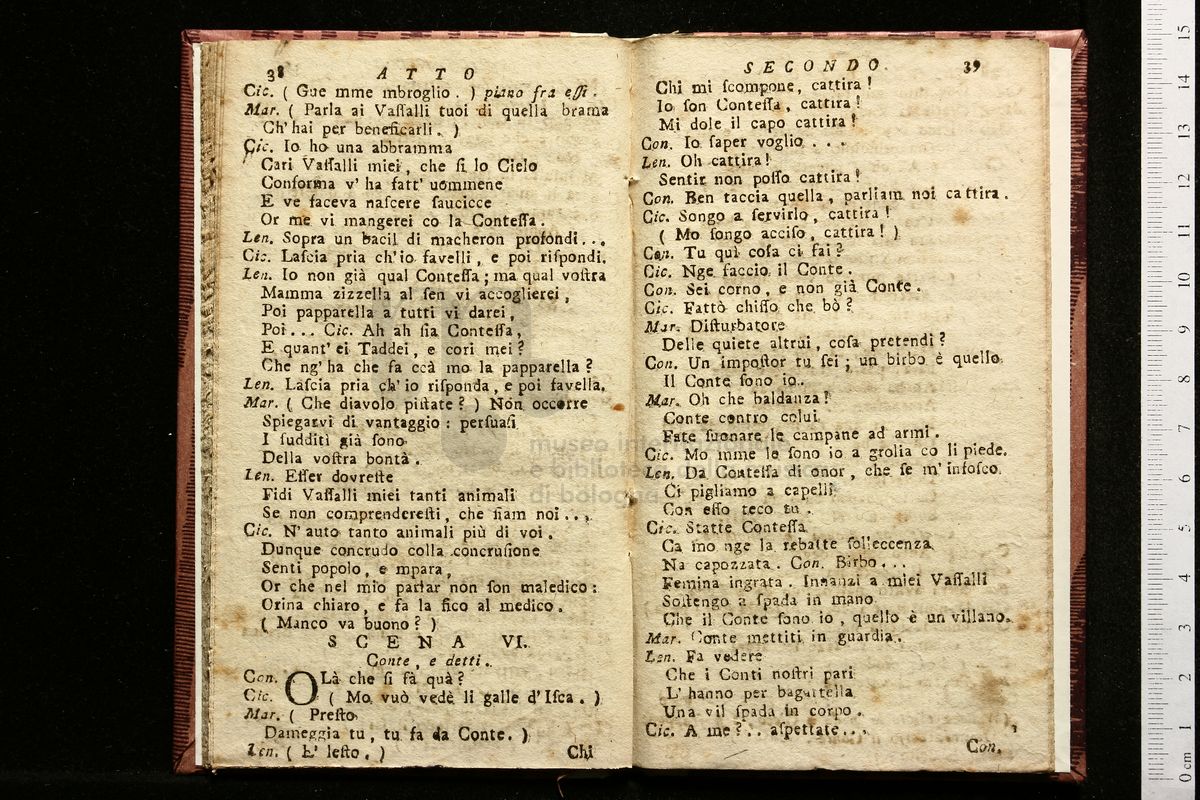 38 ATTO
Cic. ( Gue mme mbroglio. ) piano fra essi.
Mar. ( Parla ai Vaſſalli tuoi di quella brama
Ch' hai per beneficarli. )
Cic. Io ho una abbramma
Cari Vaſſalli miei, che ſi lo Cielo
Conforma v' ha fatt' uommene
E ve faceva naſcere ſaucicce
Or me vi mangerei co la Conteſſa.
Len. Sopra un bacil di macheron profondi...
Cic. Laſcia pria ch' io favelli, e poi riſpondi.
Len. Io non già qual Conteſſa; ma qual voſtra
Mamma zizzella al ſen vi accoglierei,
Poi papparella a tutti vi darei,
Poi... Cic. Ah ah ſia Conteſſa,
E quant' ei Taddei, e cori mei?
Che ng' ha che fa ccà mo la papparella?
Len. Laſcia pria ch' io riſponda, e poi favella.
Mar. ( Che diavolo piſtate? ) Non occorre
Spiegarvi di vantaggio: perſuaſi
I ſudditi già ſono
Della voſtra bontà.
Len. Eſſer dovreſte
Fidi Vaſſalli miei tanti animali
Se non comprendereſti, che ſiam noi...
Cic. N' auto tanto animali più di voi.
Dunque concrudo colla concruſione
Senti popolo, e mpara,
Or che nel mio parlar non ſon maledico:
Orina chiaro, e fa la fico al medico.
( Manco va buono? )
SCENA VI.
Conte, e detti.
Con. OLà che ſi fà quà?
Cic. ( Mo vuò vedè li galle d' Iſca. )
Mar. ( Preſto
Dameggia tu, tu fa da Conte. )
Len. ( E' leſto. ) Chi
SECONDO. 39
Chi mi ſcompone, cattira!
Io ſon Conteſſa, cattira!
Mi dole il capo cattira!
Con. Io ſaper voglio...
Len. Oh cattira!
Sentir non poſſo cattira!
Con. Ben taccia quella, parliam noi cattira.
Cic. Songo a ſervirlo, cattira!
( Mo ſongo acciſo, cattira! )
Con. Tu quì coſa ci fai?
Cic. Nge faccio il Conte.
Con. Sei corno, e non già Conte.
Cic. Fattò chiſſo che bò?
Mar. Diſturbatore
Delle quiete altrui, coſa pretendi?
Con. Un impoſtor tu ſei; un birbo è quello
Il Conte ſono io.
Mar. Oh che baldanza!
Conte contro colui
Fate ſuonare le campane ad armi.
Cic. Mo mme le ſono io a grolia co li piede.
Len. Da Conteſſa di onor, che ſe m' infoſco
Ci pigliamo a capelli
Con eſſo teco tu.
Cic. Statte Conteſſa
Ca mo nge la rebatte ſolleccenza
Na capozzata. Con. Birbo...
Femina ingrata. Innanzi a miei Vaſſalli
Soſtengo a ſpada in mano
Che il Conte ſono io, quello è un villano.
Mar. Conte mettiti in guardia.
Len. Fa vedere
Che i Conti noſtri pari
L' hanno per bagattella
Una vil ſpada in corpo.
Cic. A me?.. aſpettate...
Con.